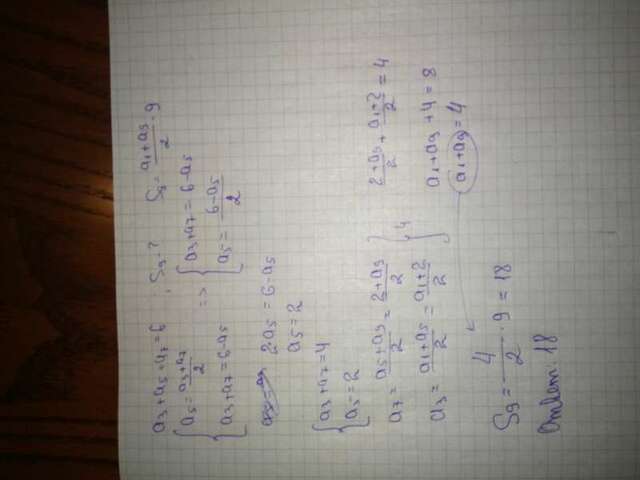 a₃+a₅+a₇=6 ; S₉-? S₉ = (a₁+a₉)/2 · 9
{ a₅ = (a₃+a₇)/2 => { a₃+a₇ = 6-a₅
{ a₃+a₇=6-a₅ { a₅ = (6-a₅)/2
2·a₅ = 6-a₅
a₅ = 2
{ a₃+a₇=4
{ a₅=2
a₇ = (a₅+a₉)/2 = (2+a₉)/2 } 4 (2+a₉)/2 + (a₁+2)/2 = 4
a₃ = (a₁+a₅)/2 = (a₁+2)/2 } a₁+a₉+4=8
a₁+a₉=4
S₉ = 4/2 · 9 = 18
Ответ: 18